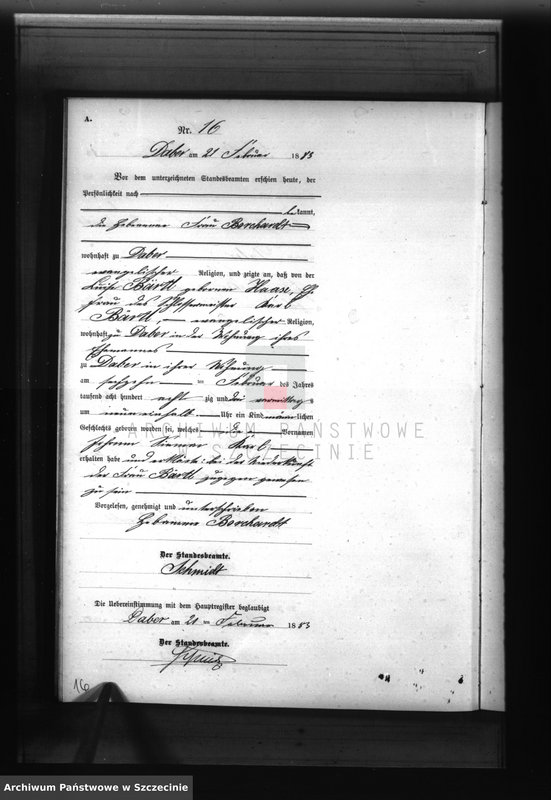 A.
Nr. 16
Daber am 21 Februar 1883
Vor dem unterzeichneten Standesbeamten erschien heute, der
Persönlichkeit nach
bekannt,
die Hebamme Frau Borchardt
wohnhaft zu Daber
evangelischer Religion, und zeigte an, daß von der
Luise Bärtl geborenen Haase,
Frau des Schlossermeister Karl
Bärtl, evangelischer Religion,
wohnhaft zu Daber in der Wohnung ihres
Ehemannes
zu Daber in ihrer Wohnung
am sechzehn ten Februar des Jahres
tausend acht hundert acht zig und drei vormittags
um neun einhalb Uhr ein Kind männlichen
Geschlechts geboren worden sei, welches Vornamen
Karl
erhalten habe und erklärte: bei der Niederkunft
der Frau Bärtl zugegen gewesen
zu sein
Vorgelesen, genehmigt und unterschrieben
Hebamme Borchardt
Der Standesbeamte.
Schmidt
Die Uebereinstimmung mit dem Hauptregister beglaubigt
Daber am 21 ten Februar 1883
Der Standesbeamte.
16
ARCHIWUM PAŃSTWOWE
W SZCZECINIE
Archiwum Państwowe w Szczecinie